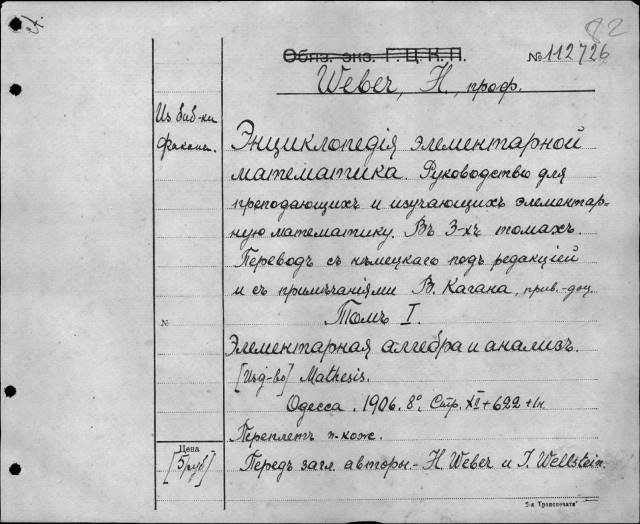 82
Обяз. экз. Г.Ц.К.П.
№ 112726
Weber, H., проф.
Из биб-ки
Энциклопедія элементарной
математика. Руководство для
преподающихъ и изучающихъ элементар-
ную математику. Въ 3-хъ томахъ.
Переводъ съ нѣмецкаго подъ редакціей
и съ примѣчаніями В. Кагана, прив.-доц.
Томъ I.
№
Элементарная алгебра и анализъ.
[Изд-во] Mathesis.
Одесса. 1906. 8°. Стр. XI+622+1н.
Переплетъ п-кож.
Цена
[5 руб]
Передъ загл. авторы - H. Weber и J. Wellstein.